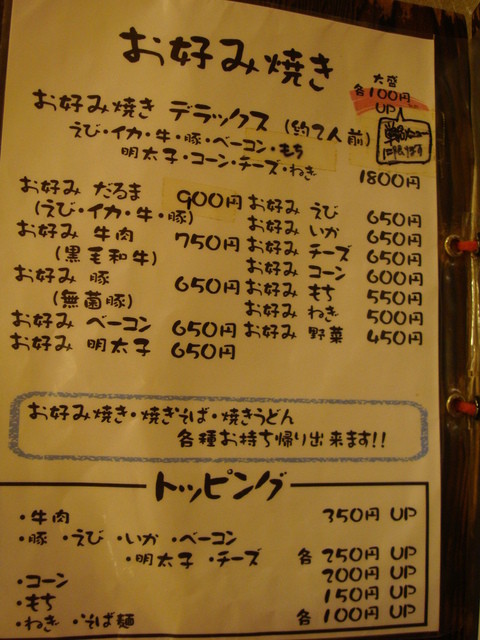 お好み焼き
大盛
各100円
UP
お好み焼き デラックス (約2人前)
えび・イカ・牛・豚・ベーコン・もち
明太子・コーン・チーズ・ねぎ
1800円
お好み だるま 900円
(えび・イカ・牛・豚)
お好み 牛肉 750円
(黒毛和牛)
お好み 豚 650円
(無菌豚)
お好み ベーコン 650円
お好み 明太子 650円
お好み えび 650円
お好み いか 650円
お好み チーズ 650円
お好み コーン 600円
お好み もち 550円
お好み ねぎ 500円
お好み 野菜 450円
お好み焼き・焼きそば・焼きうどん
各種お持ち帰り出来ます!!
トッピング
・牛肉 350円 UP
・豚 ・えび ・いか ・ベーコン
・明太子 ・チーズ 各 250円 UP
・コーン 200円 UP
・もち 150円 UP
・ねぎ ・そば麺 各 100円 UP